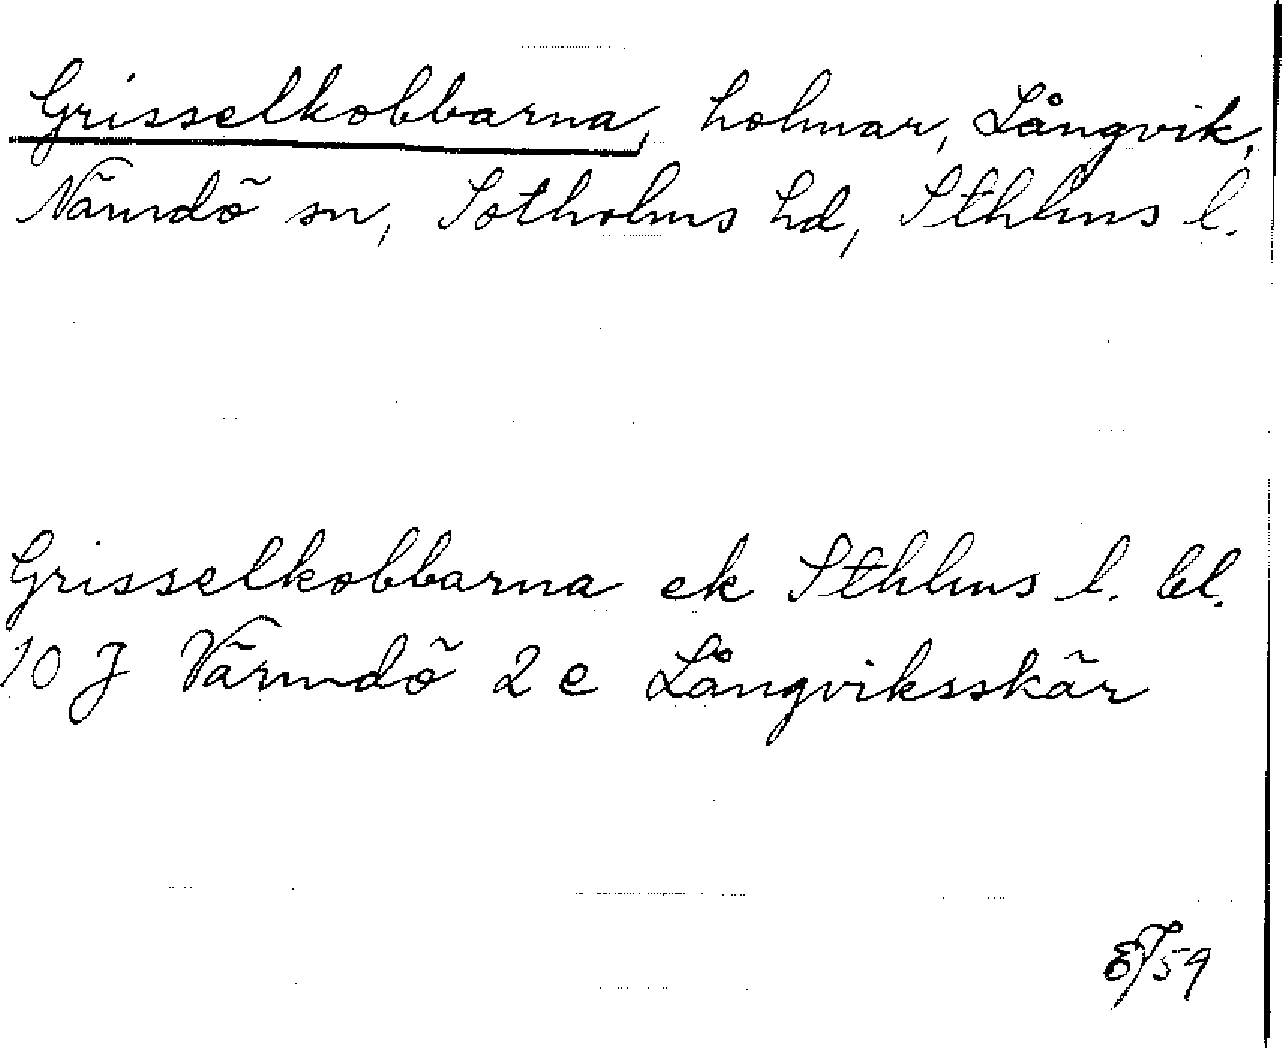 Grisselkobbarna, holmar, Långvik,
Nämdö sn, Sotholms hd, Sthlms l.
Grisselkobbarna ek Sthlms l. bl.
10 J Värmdö 2 e Långviksskär